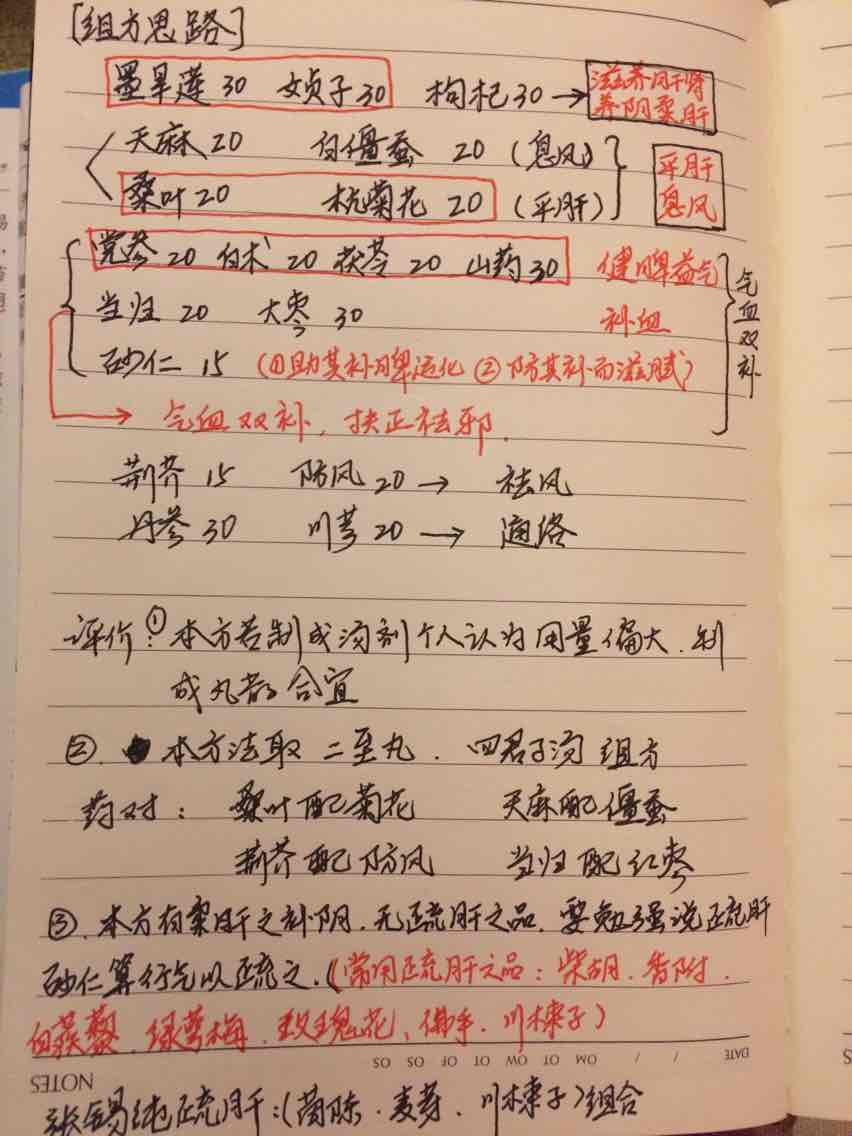 [组方思路]
墨旱莲 30 女贞子 30 枸杞 30 → 滋养肝肾
养阴柔肝
天麻 20 白僵蚕 20 (息风)
桑叶 20 杭菊花 20 (平肝)
平肝
息风
党参 20 白术 20 茯苓 20 山药 30 健脾益气
当归 20 大枣 30 补血
砂仁 15 (①助其补脾运化 ②防其补而滋腻)
气血双补
→ 气血双补, 扶正祛邪.
荆芥 15 防风 20 → 祛风
丹参 30 川芎 20 → 通络
评价: ① 本方若制成汤剂个人认为用量偏大. 制
成丸剂合宜
②. 本方法取 二至丸. 四君子汤 组方
药对: 桑叶配菊花 天麻配僵蚕
荆芥配防风 当归配红枣
③. 本方有柔肝之补阴. 无疏肝之品. 要勉强说疏肝
砂仁算行气以疏之. (常用疏肝之品: 柴胡. 香附.
白蒺藜. 绿萼梅. 玫瑰花、佛手. 川楝子)
DATE / / MO TU WE TH FR SA SU
NOTES
张锡纯疏肝: (茵陈. 麦芽. 川楝子) 组合